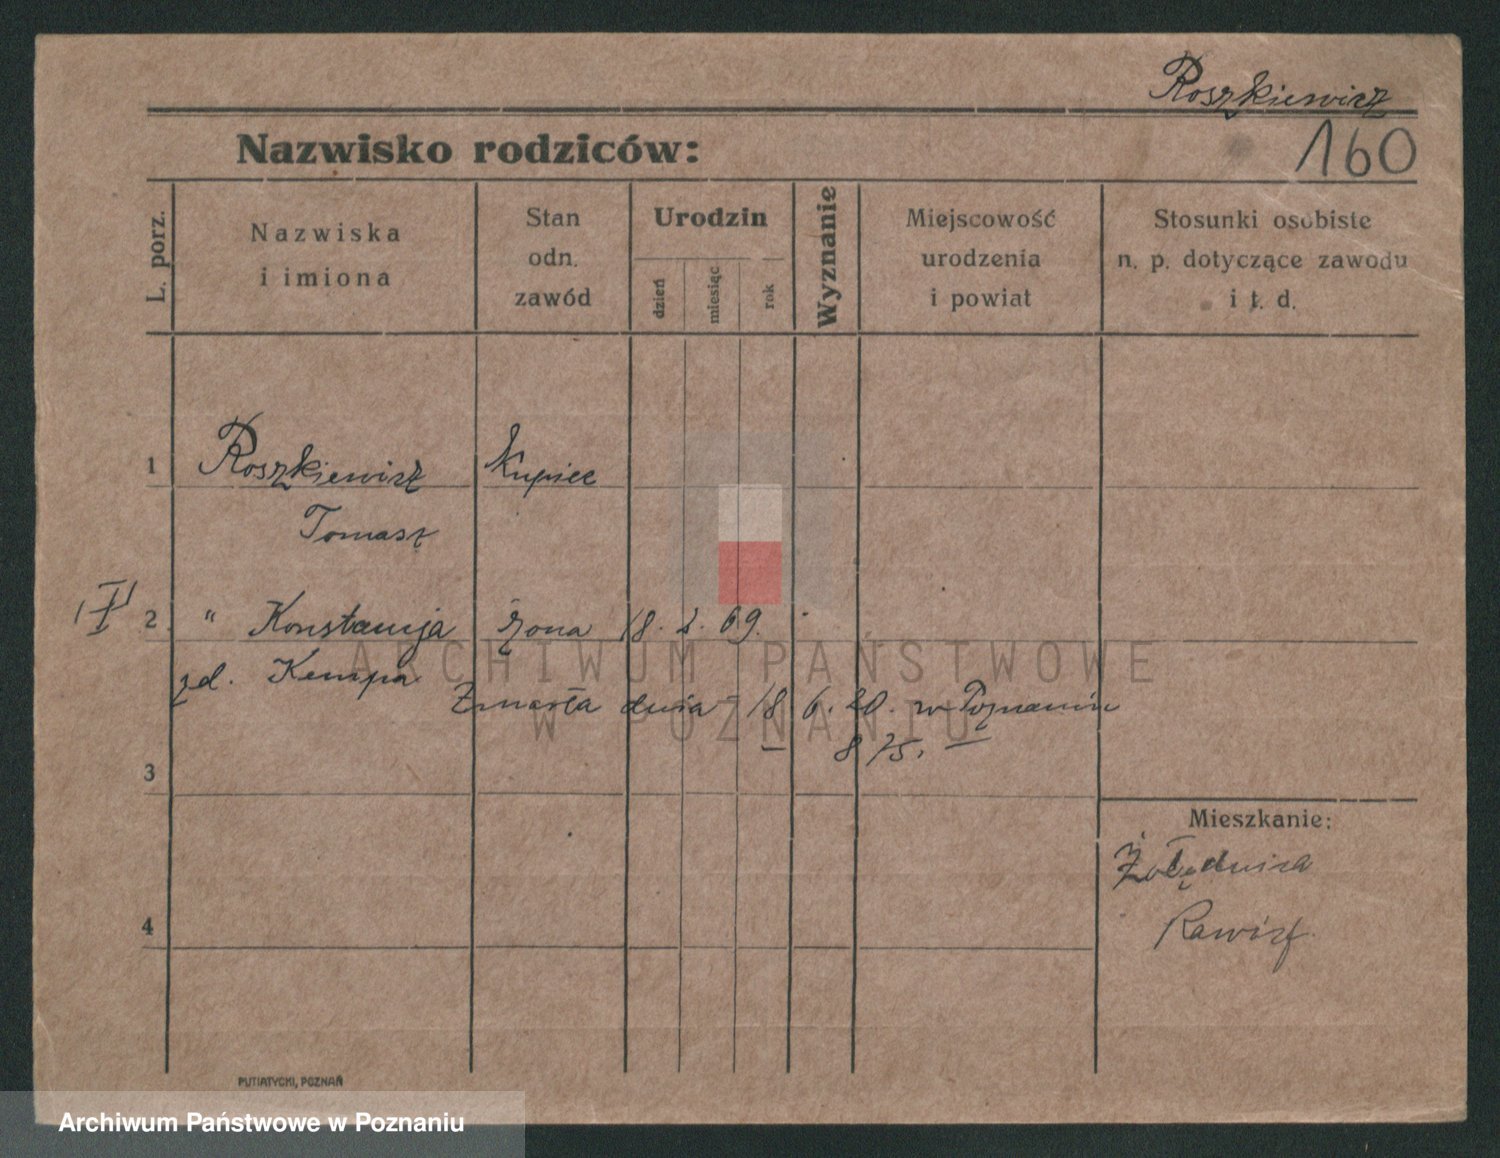 Roszkiewicz
Nazwisko rodziców:
160
L. porz.
Nazwiska
i imiona
Stan
odn.
zawód
Urodzin
dzień
miesiąc
rok
Wyznanie
Miejscowość
urodzenia
i powiat
Stosunki osobiste
n. p. dotyczące zawodu
i t. d.
1
Roszkiewicz
Kupiec
Tomasz
2
" Konstancja
żona
18. 2. 69.
zd. Kempa
Zmarła dnia 18 6. 20. w Poznaniu
875.
3
Mieszkanie:
Żołędnica
Rawicz
4
PUTIATYCKI, POZNAŃ
ARCHIWUM PAŃSTWOWE
W POZNANIU
Archiwum Państwowe w Poznaniu